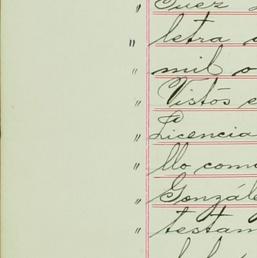 " Juez
" letra
" mil o
" Vistos e
" Licencia
" llo como
" Gonzále
" testam